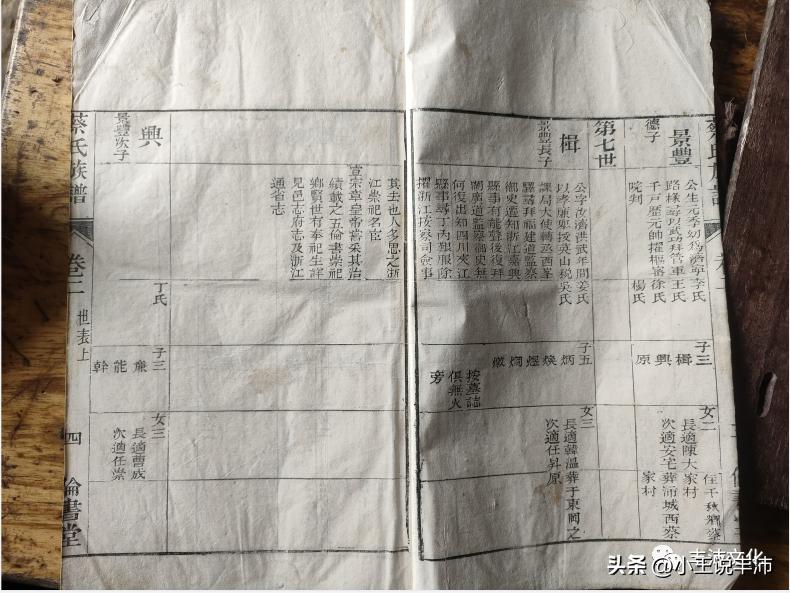 蔡氏族譜
景豐
德子
公生元季幼
路樣尋以武功拜管軍王氏
千戸歷元帥擢樞審徐氏
院判
楊氏
子三
楫
興
原
女二
長適陳大家村
次適安宅葬沛城西蔡
家村
住千秋鄉蔡
第七世
楫
景豐長子
公字汝濟洪武年間姜氏
以孝廉舉授英山稅吳氏
課局大使轉丞酉峯
驛尋拜福建道監察
御史遷知浙江嘉興
縣事有能聲後復拜
湖廣道監察御史無
何復出知四川夾江
縣事尋丁內艱服除
擢浙江按察司僉事
子五
炳
煥
煜
燗
徽
按墓誌
俱無火
旁
女三
長適韓溫葬于東岡之
次適任昇原
其去也人多思之浙
江崇祀名宦
宣宗章皇帝嘗采其治
績載之五倫書崇祀
鄉賢世有奉祀生詳
見邑志府志及浙江
通省志
興
景豐次子
丁氏
子三
廉
能
幹
女三
長適曹成
次適任崇
蔡氏族譜
卷二
世表上
四
倫書堂
头条 @小王说丰沛
丰沛文化